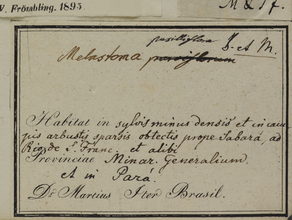 W. Frömbling. 1895
M & ff.
pusilliflora
Melastoma parviflorum D. et M.
Habitat in sylvis minus densis et in cam
pis arbustis sparsis obtectis prope Sabará, ad
Rio de S. Franc. et alibi
Provinciae Minar. Generalium.
et in Pará
Dr Martius Iter Brasil.